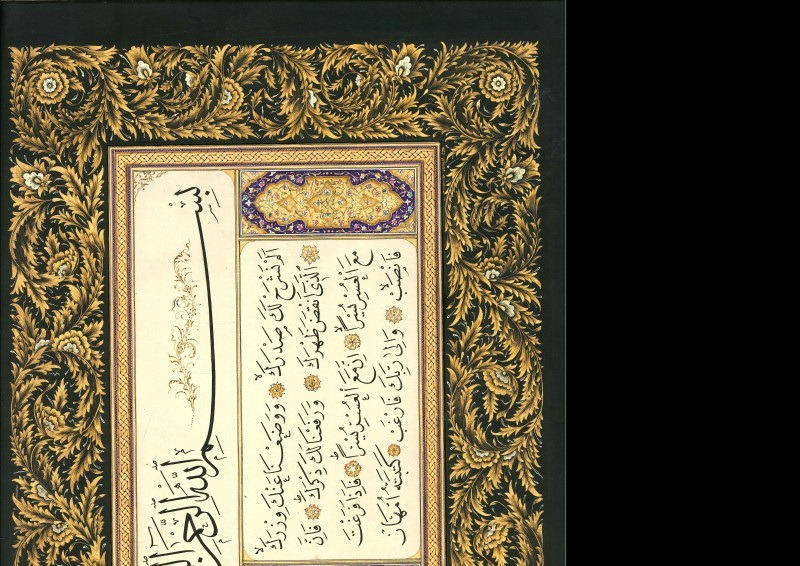 بِسْمِ اللهِ الرَّحْمٰنِ
اَلَمْ نَشْرَحْ لَكَ صَدْرَكَ وَوَضَعْنَا عَنْكَ وِزْرَكَ
اَلَّذِى اَنْقَضَ ظَهْرَكَ وَرَفَعْنَا لَكَ ذِكْرَكَ فَاِنَّ
مَعَ الْعُسْرِ يُسْرًا اِنَّ مَعَ الْعُسْرِ يُسْرًا فَاِذَا فَرَغْتَ
فَانْصَبْ وَاِلٰى رَبِّكَ فَارْغَبْ كَتَبَتْهُ اُمْهَانْ